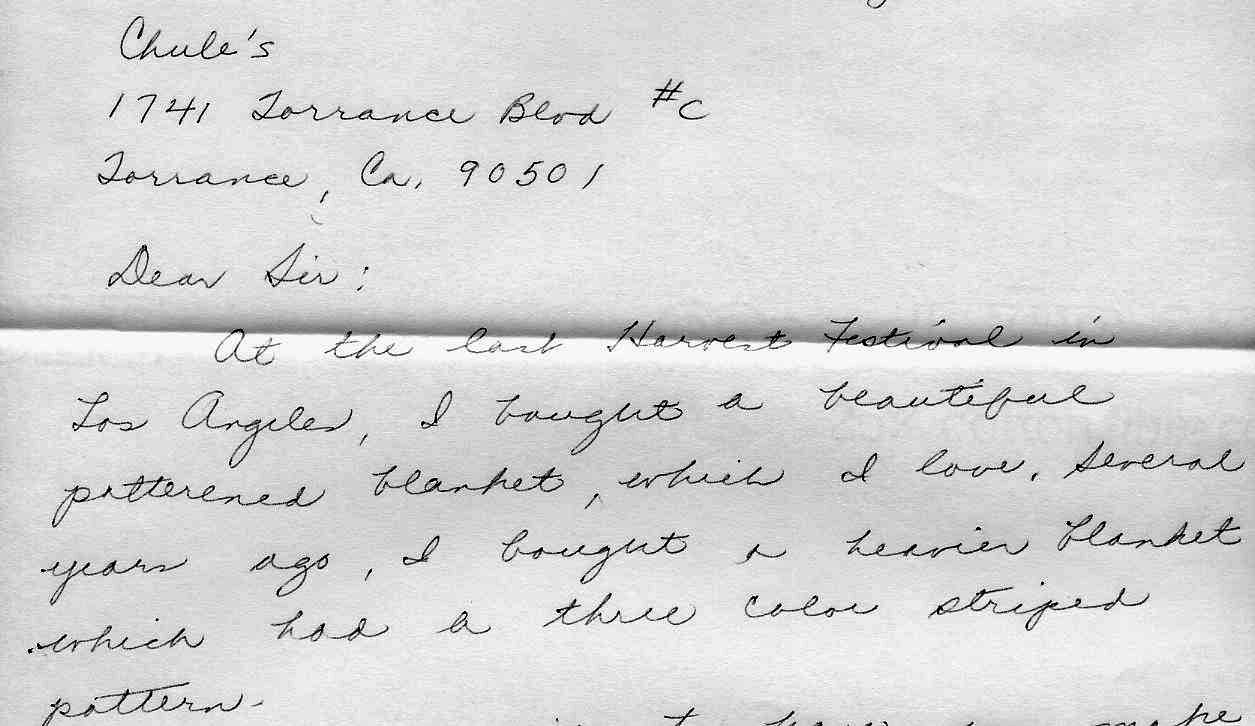 Chule's
1741 Torrance Blvd #C
Torrance, Ca. 90501
Dear Sir:
At the last Harvest Festival in
Los Angeles, I bought a beautiful
patterened blanket, which I love. Several
years ago, I bought a heavier blanket
which had a three color striped
pattern.